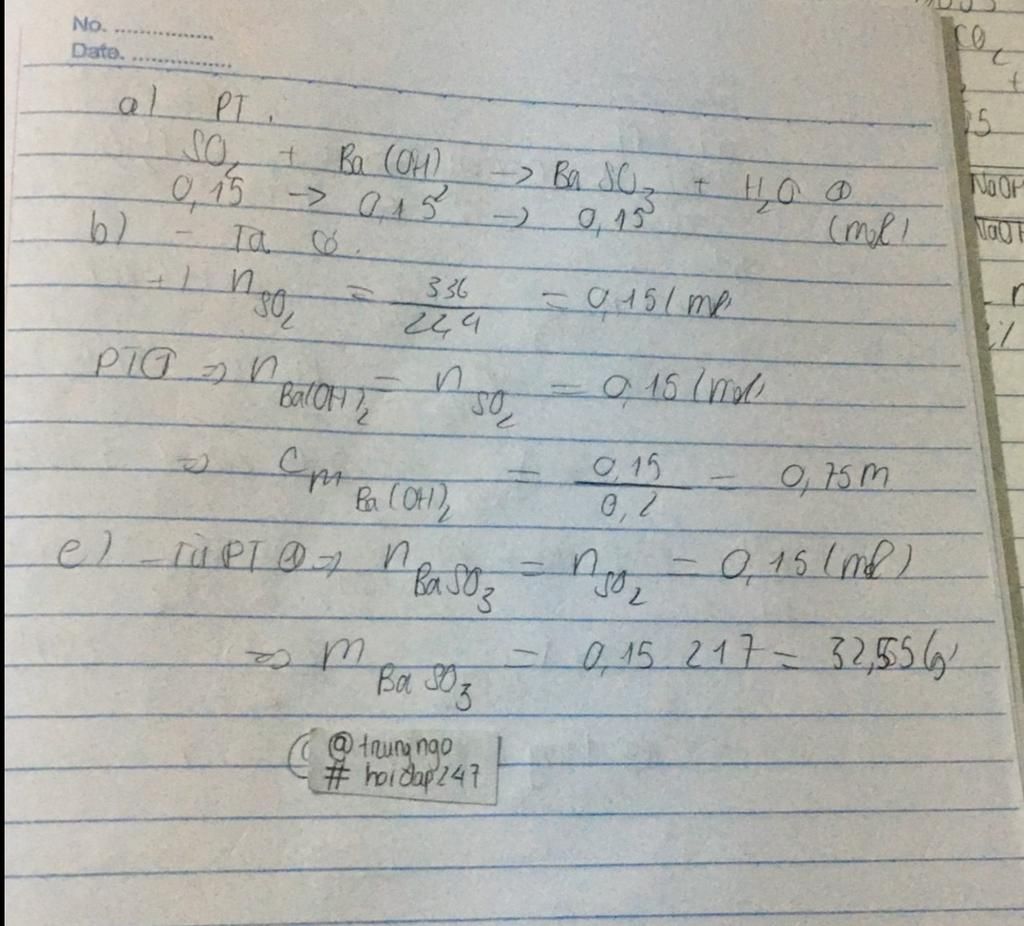 No. ................
Date. ................
a) PT.
SO₂ + Ba(OH)₂ → BaSO₃ + H₂O ①
0,15 → 0,15 → 0,15 (mol)
b) - Ta có.
+) n SO₂ = 336/22,4 = 0,15(mol)
PT① => n Ba(OH)₂ = n SO₂ = 0,15(mol)
=> CM Ba(OH)₂ = 0,15/0,2 = 0,75M
c) - Từ PT ① => n BaSO₃ = n SO₂ = 0,15(mol)
=> m BaSO₃ = 0,15 217 = 32,55(g)
@trungngo
# hoidap247
CO₂
+
NaOH